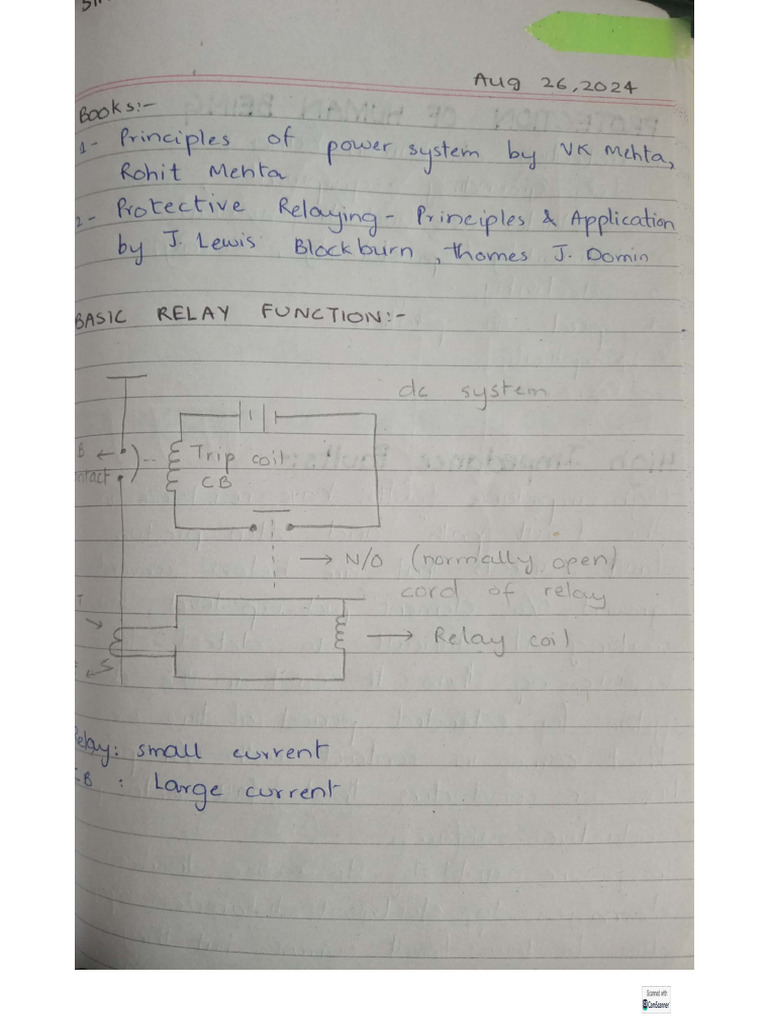 Aug 26, 2024
Books:-
1- Principles of power system by VK Mehta,
Rohit Mehta
2- Protective Relaying - Principles & Application
by J. Lewis Blackburn, Thomes J. Domin
BASIC RELAY FUNCTION:-
dc system
Trip coil
CB
→ N/O (normally open)
cord of relay
→ Relay coil
Relay: small current
CB : Large current
Scanned with
CamScanner